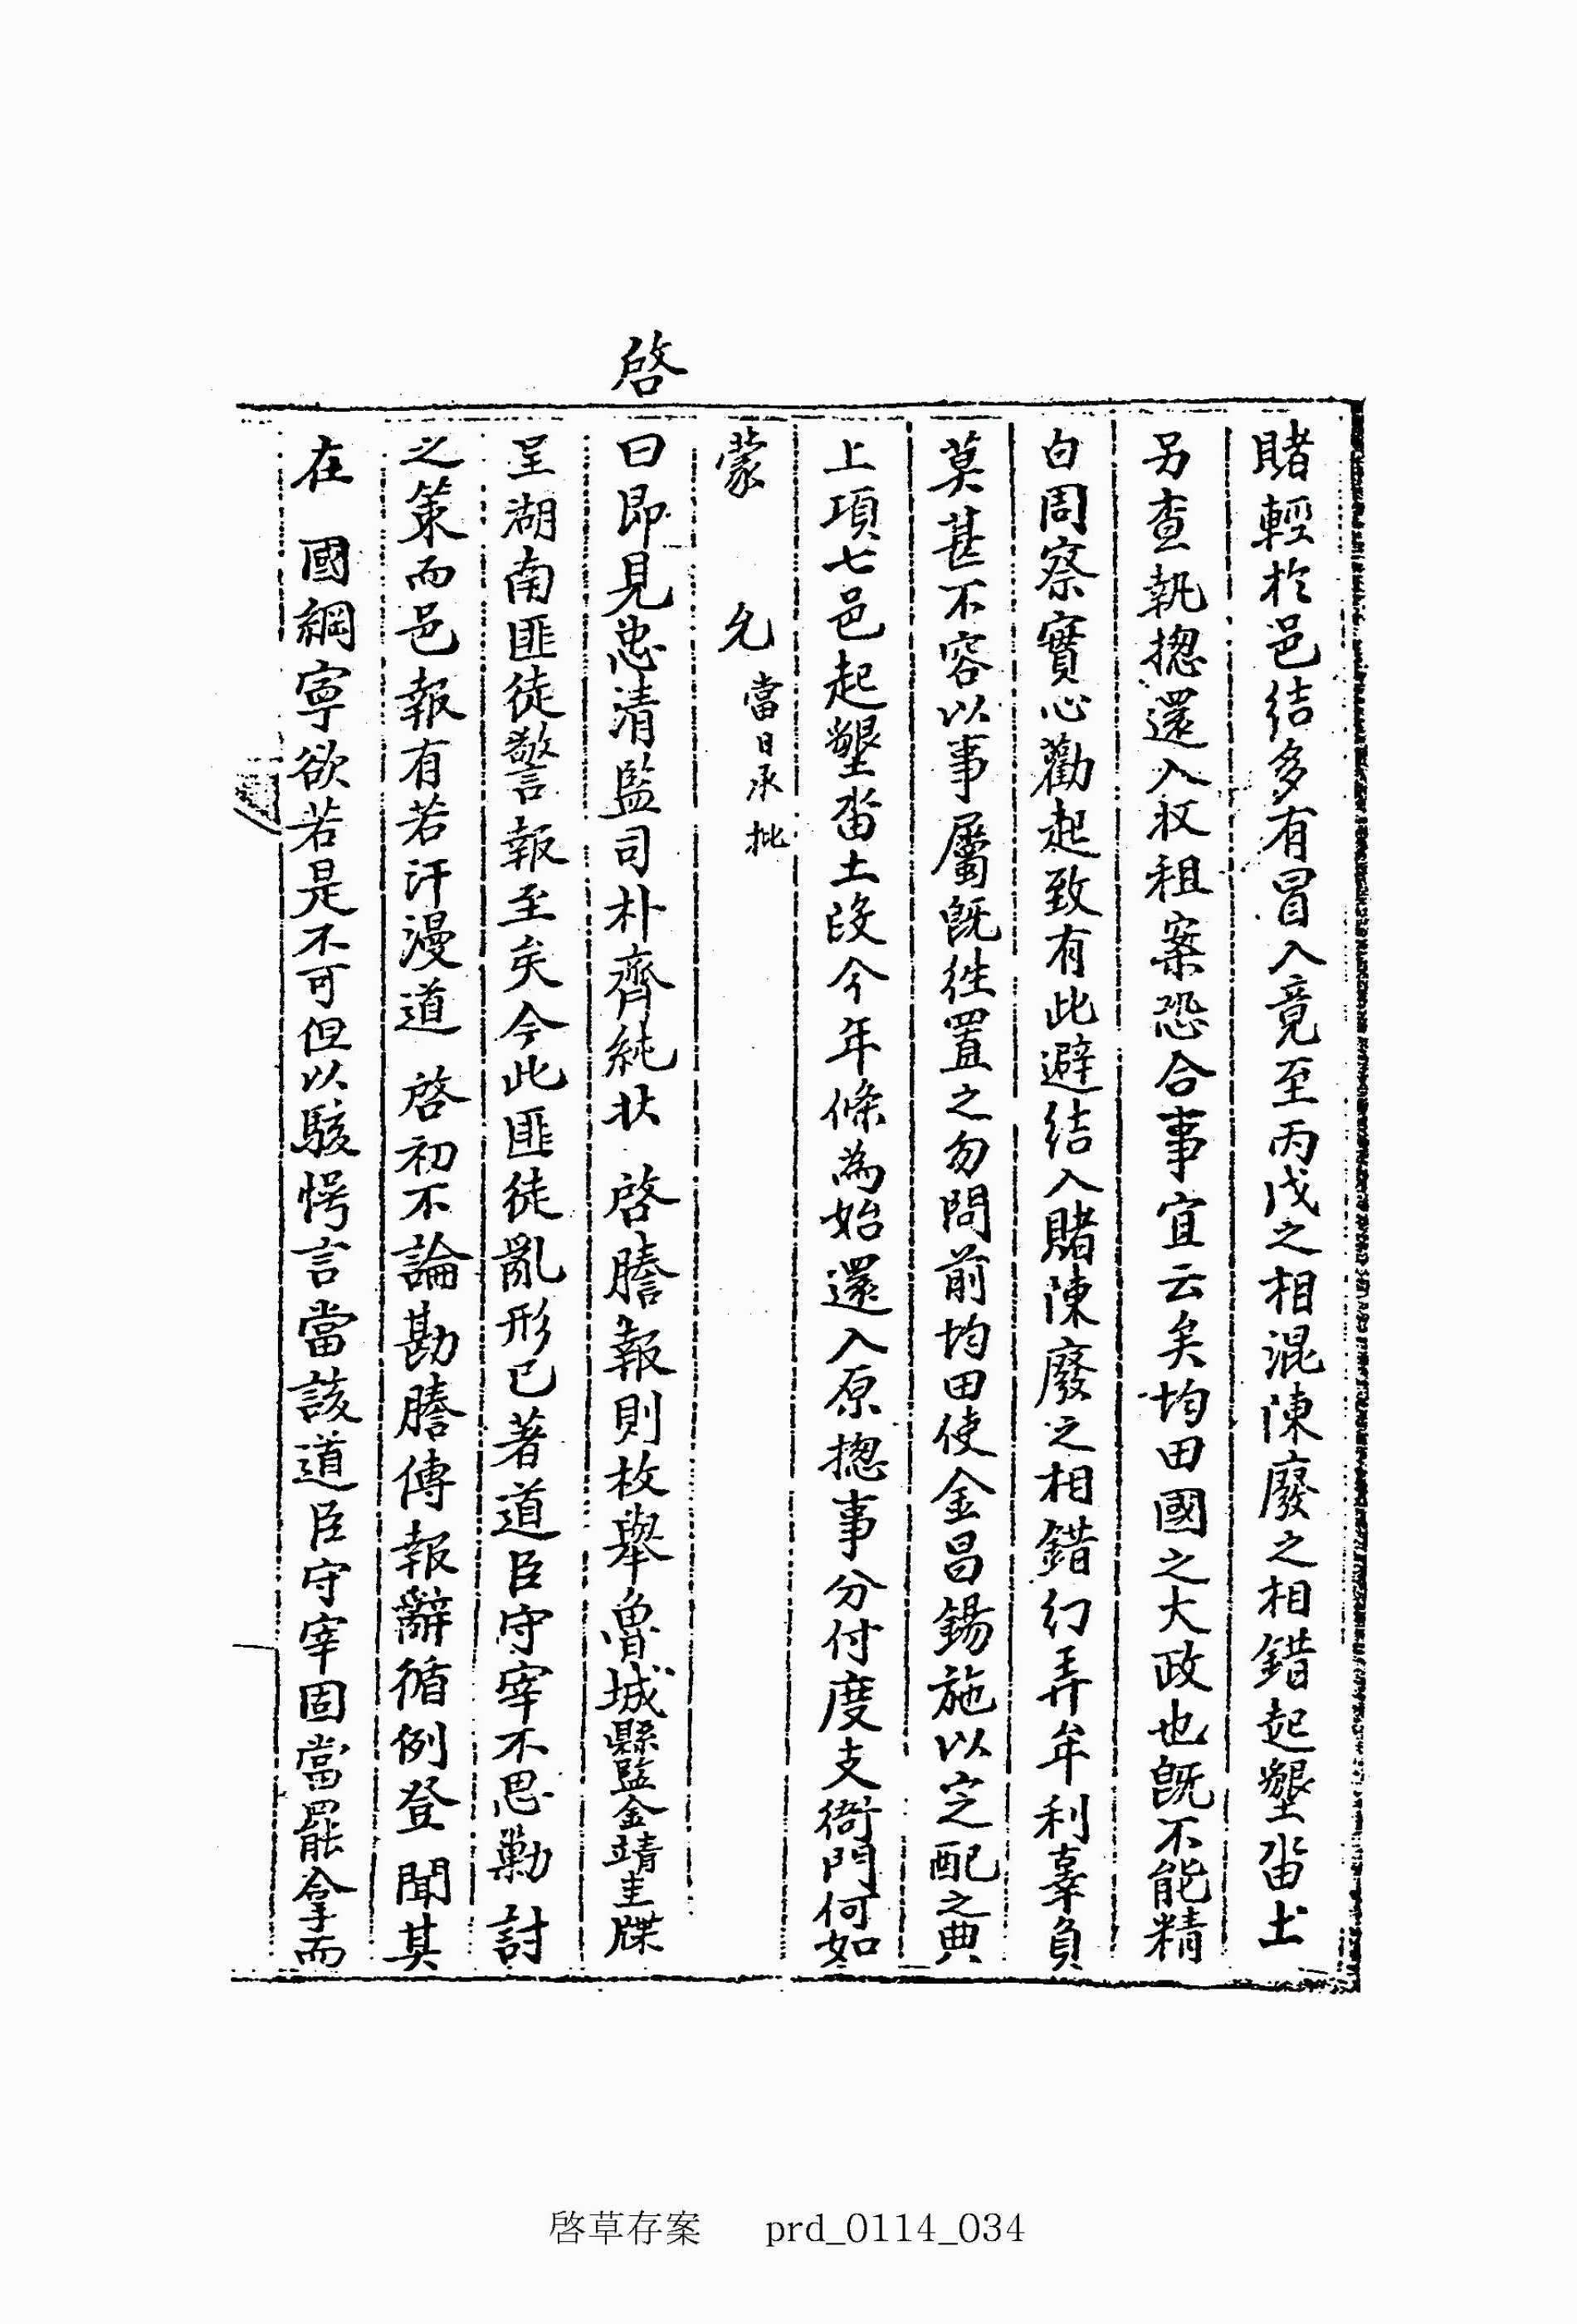 賭輕於邑結多有冒入竟至丙戊之相混陳廢之相錯起墾畓土
另查執摠還入收租案恐合事宜云矣均田國之大政也旣不能精
白周察實心勸起致有此避結入賭陳廢之相錯幻弄牟利辜負
莫甚不容以事屬旣徃置之勿問前均田使金昌錫施以定配之典
上項七邑起墾畓土段今年條為始還入原摠事分付度支衙門何如
蒙 允 當日承批
啓
曰即見忠清監司朴齊純狀 啓謄報則枚擧魯城縣監金靖圭牒
呈湖南匪徒警報至矣今此匪徒亂形已著道臣守宰不思勦討
之策而邑報有若汗漫道 啓初不論勘謄傳報辭循例登 聞其
在 國綱寧欲若是不可但以駭愕言當該道臣守宰固當罷拿而
啓草存案 prd_0114_034